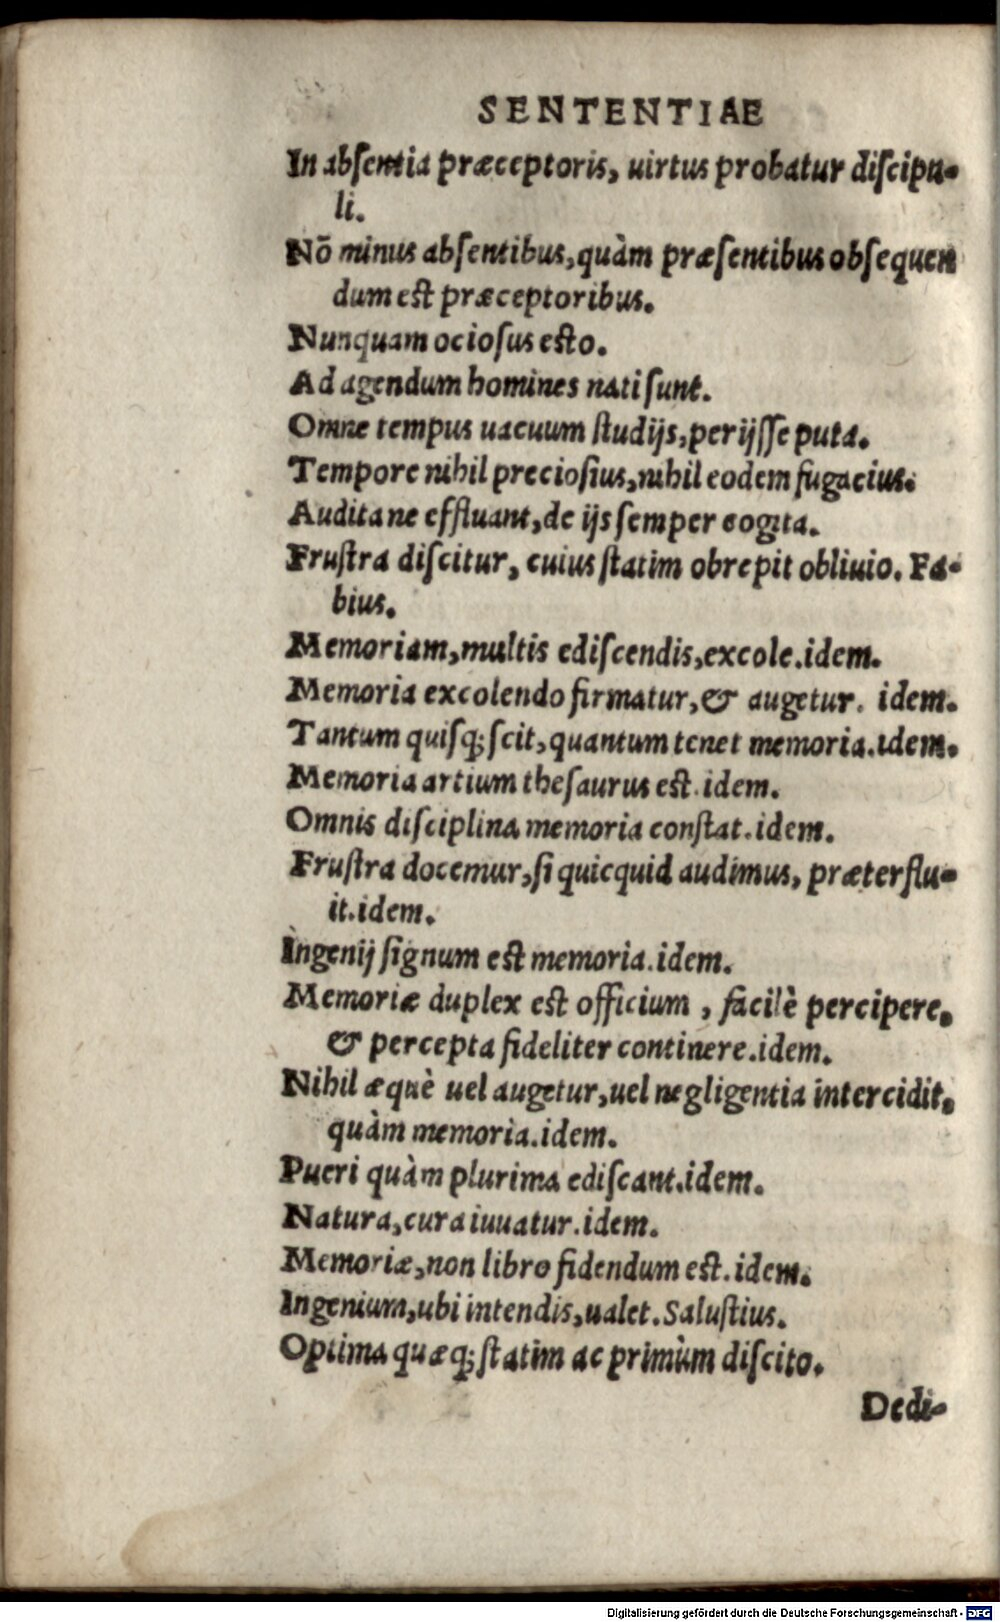 SENTENTIAE
In absentia præceptoris, uirtus probatur discipu-
li.
Nō minus absentibus, quàm præsentibus obsequen
dum est præceptoribus.
Nunquam ociosus esto.
Ad agendum homines nati sunt.
Omne tempus uacuum studijs, perijsse puta.
Tempore nihil preciosius, nihil eodem fugacius.
Audita ne effluant, de ijs semper cogita.
Frustra discitur, cuius statim obrepit obliuio. Fa-
bius.
Memoriam, multis ediscendis, excole. idem.
Memoria excolendo firmatur, & augetur. idem.
Tantum quisq; scit, quantum tenet memoria. idem.
Memoria artium thesaurus est. idem.
Omnis disciplina memoria constat. idem.
Frustra docemur, si quicquid audimus, præterflu-
it. idem.
Ingenij signum est memoria. idem.
Memoriæ duplex est officium, facilè percipere,
& percepta fideliter continere. idem.
Nihil æquè uel augetur, uel negligentia intercidit,
quàm memoria. idem.
Pueri quàm plurima ediscant. idem.
Natura, cura iuuatur. idem.
Memoriæ, non libro fidendum est. idem.
Ingenium, ubi intendis, ualet. Salustius.
Optima quæq; statim ac primùm discito.
Dedi-
Digitalisierung gefördert durch die Deutsche Forschungsgemeinschaft - DFG